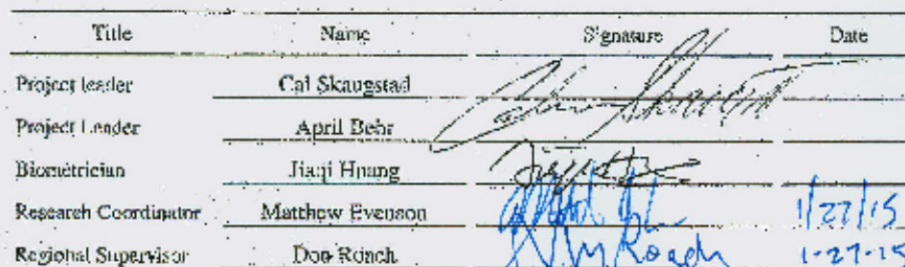 Title Name Signature Date
Project leader Cal Skaugstad
Project Leader April Behr
Biometrician Jiaqi Huang
Research Coordinator Matthew Evenson 1/27/15
Regional Supervisor Don Roach Roach 1-27-15